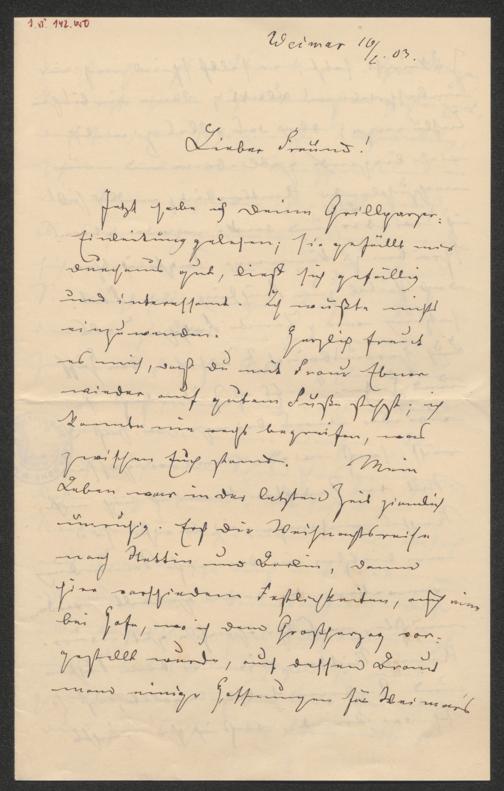 1. VI 142.100
Weimar 10/2. 03.
Lieber Freund!
Jetzt habe ich Deine Grillparzer-
Einleitung gelesen; sie gefällt mir
durchaus gut, liest sich gefällig
und interessant. Ich wüßte nichts
einzuwenden. Herzlich freut
es mich, daß Du mit Frau Ebner
wieder auf gutem Fuße stehst; ich
konnte nie recht begreifen, was
zwischen Euch stand. Mein
Leben war in der letzten Zeit ziemlich
unruhig. Erst die Weihnachtsreise
nach Stettin und Berlin, dann
hier verschiedene Festlichkeiten, auch eine
bei Hofe, wo ich dem Großherzog vor-
gestellt wurde, auf dessen Braut
man einige Hoffnungen für Weimars